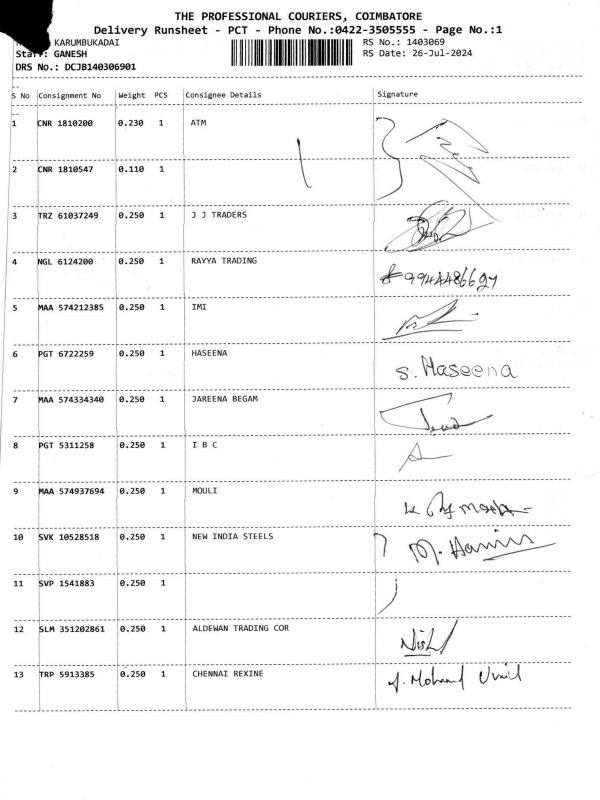 THE PROFESSIONAL COURIERS, COIMBATORE
Delivery Runsheet - PCT - Phone No.:0422-3505555 - Page No.:1
KARUMBUKADAI RS No.: 1403069
Staff: GANESH RS Date: 26-Jul-2024
DRS No.: DCJB140306901
S No Consignment No Weight PCS Consignee Details Signature
1 CNR 1810200 0.230 1 ATM
2 CNR 1810547 0.110 1
3 TRZ 61037249 0.250 1 J J TRADERS
4 NGL 6124200 0.250 1 RAYYA TRADING
5 MAA 574212385 0.250 1 IMI
6 PGT 6722259 0.250 1 HASEENA S. Haseena
7 MAA 574334340 0.250 1 JAREENA BEGAM
8 PGT 5311258 0.250 1 I B C
9 MAA 574937694 0.250 1 MOULI
10 SVK 10528518 0.250 1 NEW INDIA STEELS
11 SVP 1541883 0.250 1
12 SLM 351202861 0.250 1 ALDEWAN TRADING COR
13 TRP 5913385 0.250 1 CHENNAI REXINE